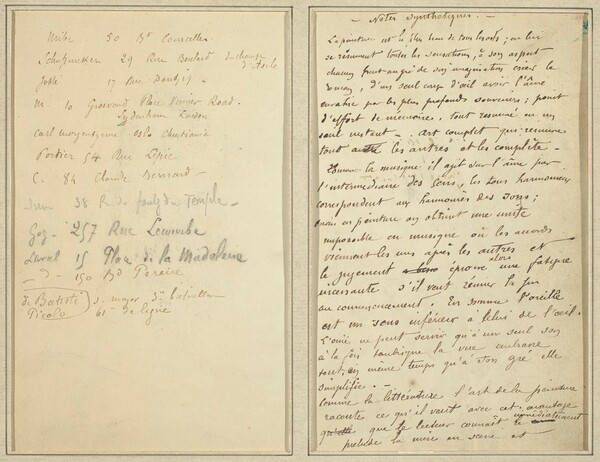 Uribe 50 Bd Courcelles
Schuffenecker 29 Rue Boulard
d'Asile
Gobb 17 Rue
M. 10 Grosvenor Place Road.
Sydenham London
Carl Oslo Christiania
Portier 54 Rue Lépic
C. 84 Claude Bernard
38 R. du faubg du Temple
257 Rue
Laval 15 Place de la Madeleine
— d° — 150 Bd Pereire
de Batisti S. major 3me bataillon
Picolo 61e de ligne
— Notes Synthétiques. —
La peinture est le plus beau de tous les arts ; en lui
se résument toutes les sensations, à son aspect
chacun peut au gré de son imagination créer le
roman, d'un seul coup d'œil avoir l'âme
envahie par les plus profonds souvenirs ; point
d'effort de mémoire, tout résumé en un
seul instant. — Art complet qui résume
tout les autres et les complète. —
Comme la musique il agit sur l'âme par
l'intermédiaire des sens, les tons harmonieux
correspondent aux harmonies des sons ;
mais en peinture on obtient une unité
impossible en musique où les accords
viennent les uns après les autres et
le jugement éprouve alors une fatigue
incessante s'il veut réunir la fin
au commencement. En somme l'oreille
est un sens inférieur à celui de l'œil.
L'ouïe ne peut servir qu'à un seul son
à la fois tandis que la vue embrasse
tout, en même temps qu'à son gré elle
simplifie. —
Comme la littérature l'art de la peinture
raconte ce qu'il veut avec cet avantage
que le lecteur connaît immédiatement
le prélude la mise en scène et